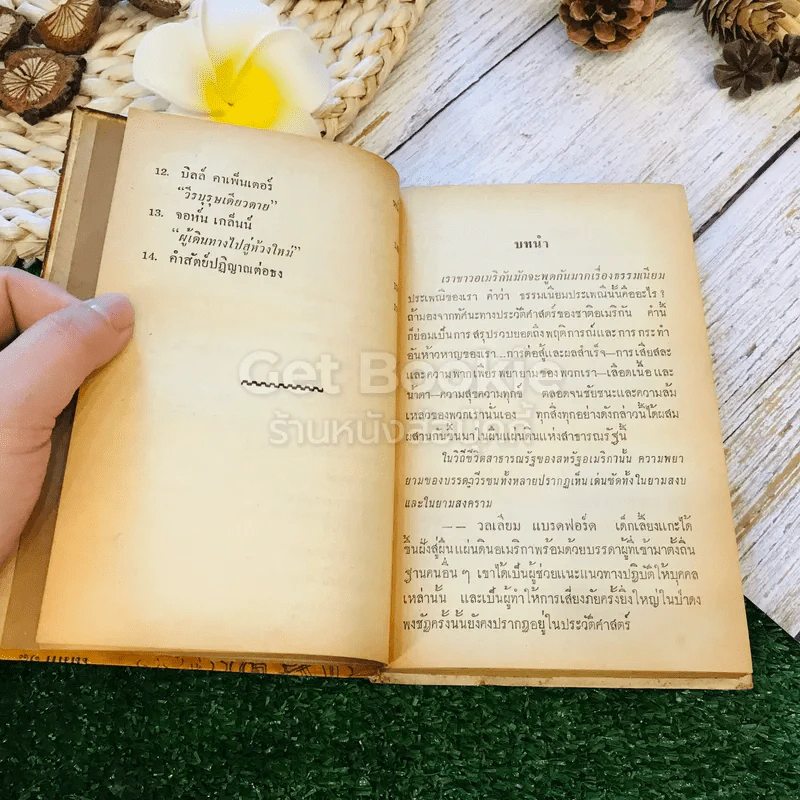 12. บิลล์ คาเพ็นเตอร์
"วีรบุรุษเดียวดาย"
13. จอห์น เกล็นน์
"ผู้เดินทางไปสู่ห้วงใหม่"
14. คำสัตย์ปฏิญาณต่อธง
บทนำ
เราชาวอเมริกันมักจะพูดกันมากเรื่องธรรมเนียม
ประเพณีของเรา คำว่า ธรรมเนียมประเพณีนั้นคืออะไร?
ถ้ามองจากทัศนะทางประวัติศาสตร์ของชาติอเมริกัน คำนี้
ก็ย่อมเป็นการสรุปรวบยอดถึงพฤติการณ์และการกระทำ
อันห้าวหาญของเรา...การต่อสู้และผลสำเร็จ—การเสียสละ
และความพากเพียรพยายามของพวกเรา—เลือดเนื้อและ
น้ำตา—ความสุขความทุกข์ ตลอดจนชัยชนะและความล้ม
เหลวของพวกเรานั่นเอง ทุกสิ่งทุกอย่างดังกล่าวนี้ได้ผสม
ผสานกันขึ้นมาในผืนแผ่นดินแห่งสาธารณรัฐนี้
ในวิถีชีวิตสาธารณรัฐของสหรัฐอเมริกานั้น ความพยา
ยามของบรรดาวีรชนทั้งหลายปรากฏเห็นเด่นชัดทั้งในยามสงบ
และในยามสงคราม
—— วิลเลียม แบรดฟอร์ด เด็กเลี้ยงแกะได้
ขึ้นฝั่งสู่ผืนแผ่นดินอเมริกาพร้อมด้วยบรรดาผู้ที่เข้ามาตั้งถิ่น
ฐานคนอื่น ๆ เขาได้เป็นผู้ช่วยแนะแนวทางปฏิบัติให้บุคคล
เหล่านั้น และเป็นผู้ทำให้การเสี่ยงภัยครั้งยิ่งใหญ่ในป่าดง
พงชัฏครั้งนั้นยังคงปรากฏอยู่ในประวัติศาสตร์
Get Bookie
ร้านหนังสือบุ๊คกี้